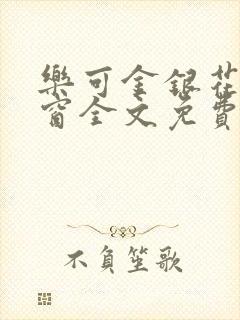 樂可金銀花
窗全文免費
不負笙歌